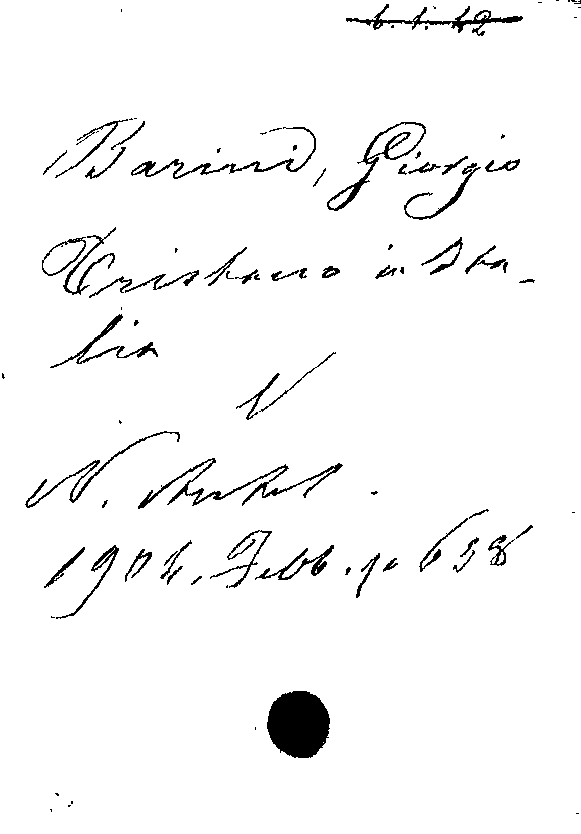 6. 1. 42
Barini, Giorgio
Tristano in Ita-
lia
V
N. Antol.
1904. Febb. p. 658